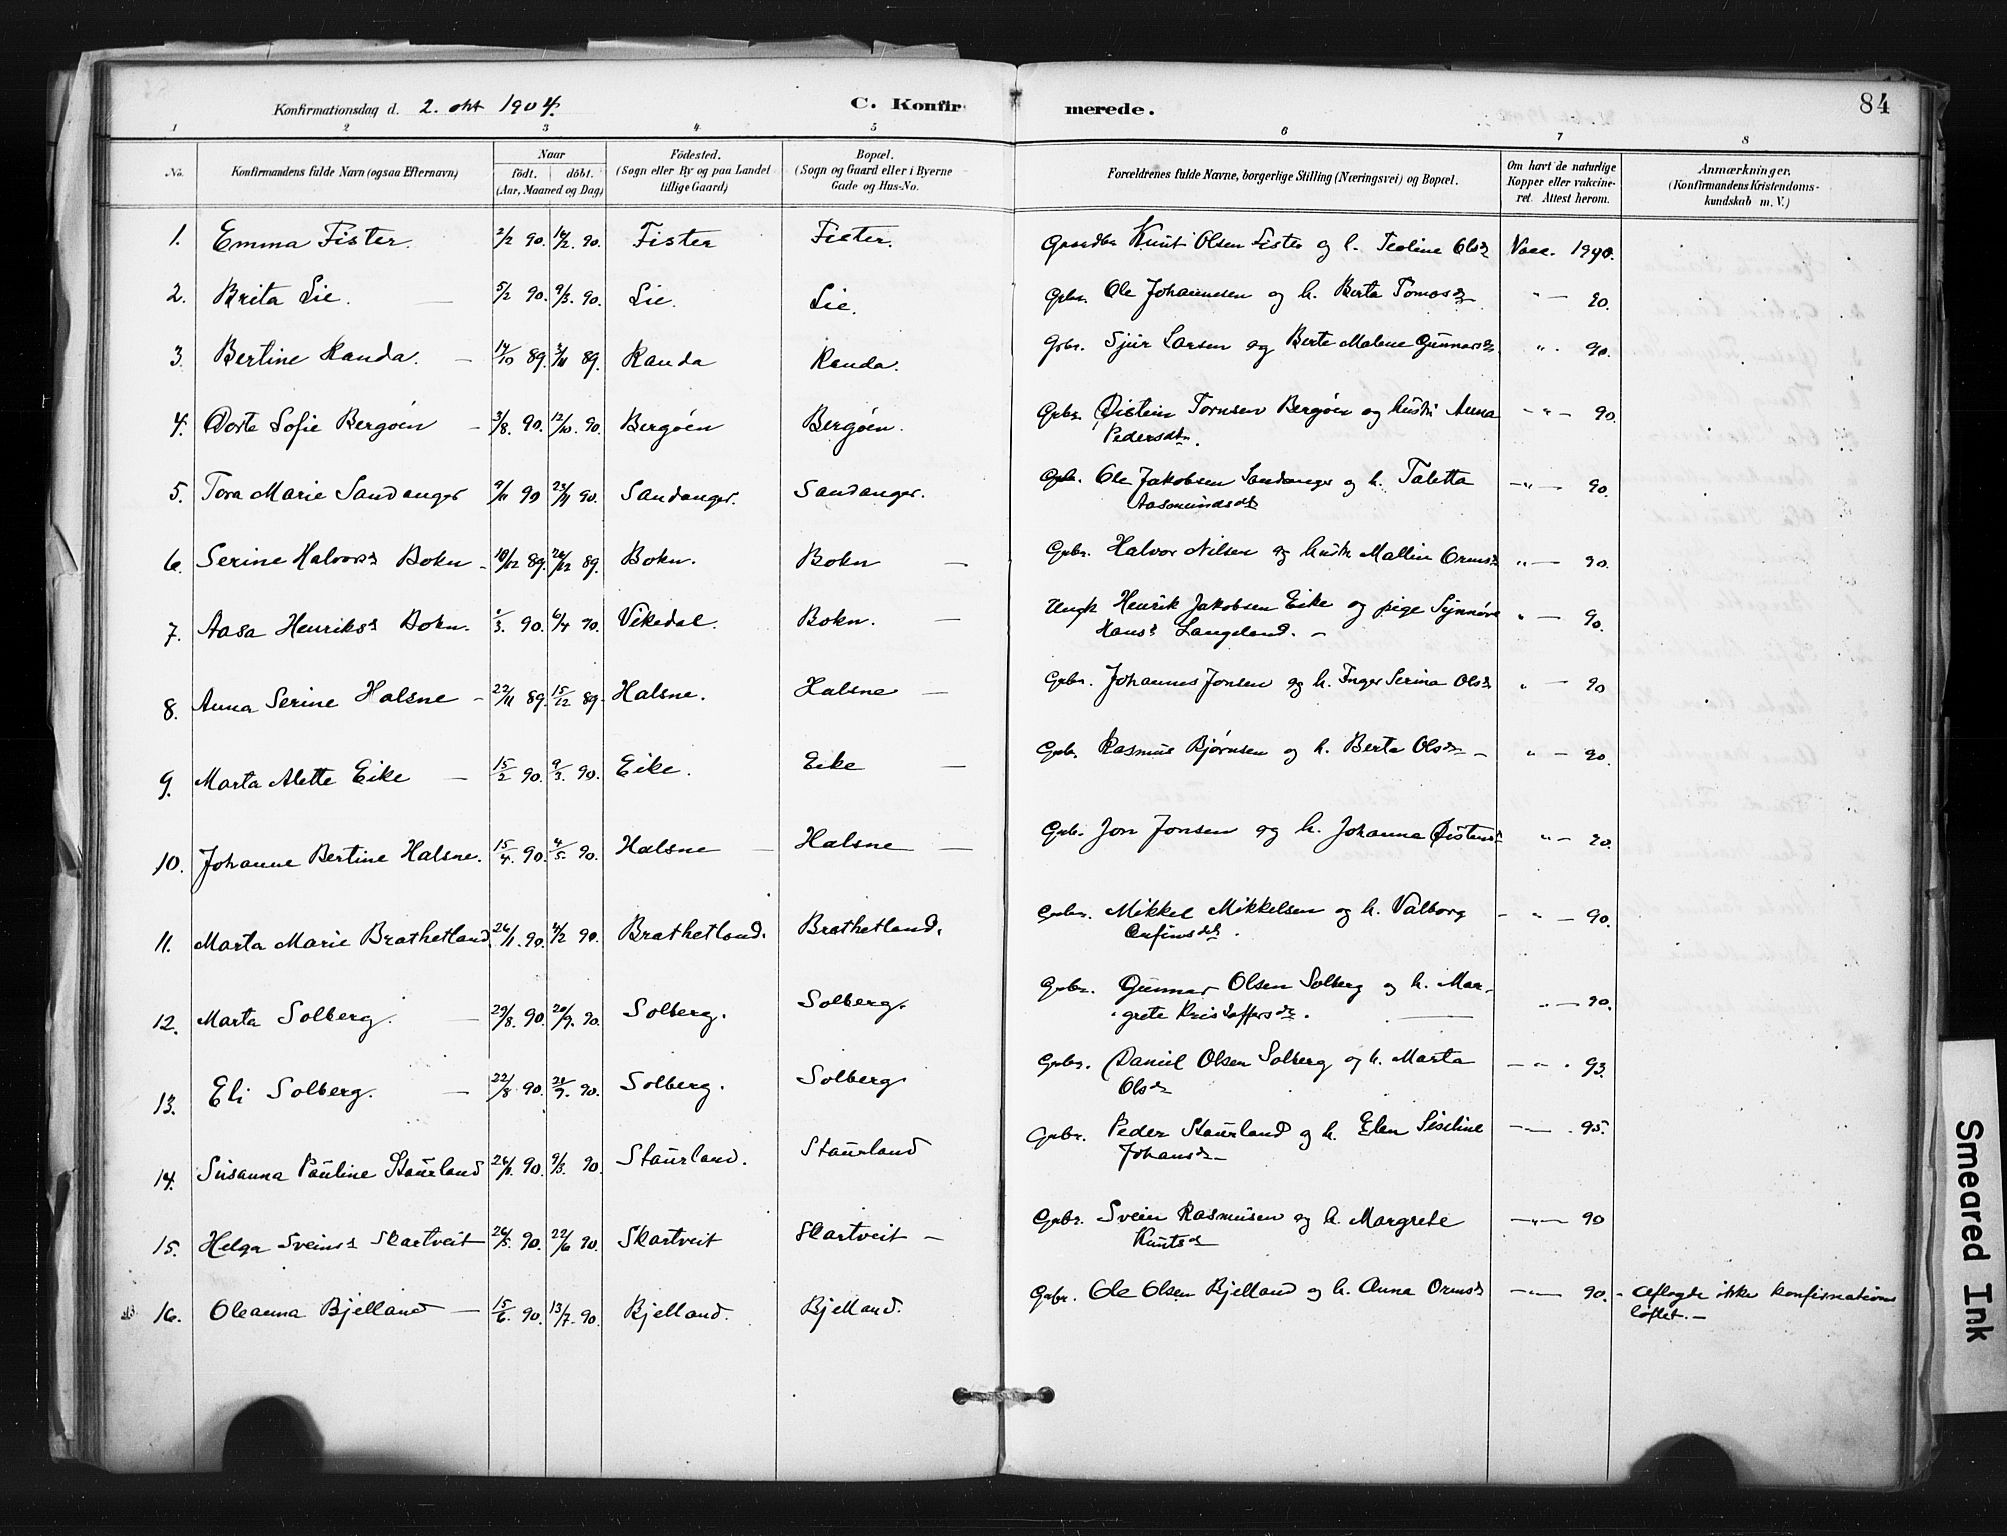 Konfirmationsdag d. 2. okt 1904. C. Konfirmerede. 84
1 2 3 4 5 6 7 8
No. Konfirmandens fulde Navn (ogsaa Efternavn) Naar födt. döbt. (Aar, Maaned og Dag) Födested. (Sogn eller By og paa Landet tillige Gaard) Bopæl. (Sogn og Gaard eller i Byerne Gade og Hus-No. Forældrenes fulde Navne, borgerlige Stilling (Næringsvei) og Bopæl. Om havt de naturlige Kopper eller vakcineret. Attest herom. Anmærkninger, (Konfirmandens Kristendomskundskab m. V.)
1. Emma Fister. 2/2 90. 14/2. 90. Fister Fister. Gaardbr Knut Olsen Fister og h. Teoline Olsd Vacc. 1890.
2. Brita Lie. — 5/2 90. 9/3. 90. Lie. Lie. Grbr. Ole Johannesen og h. Berta Tomasd " — 90.
3. Bertine Randa. — 14/10 89. 3/11 89. Randa Randa. Grbr. Sjur Larsen og Berte Malene Gunnarsd. " . 90.
4. Dorte Sofie Bergøen — 3/8. 90. 12/10. 90. Bergöen Bergöen. Grbr. Øistein Tornsen Bergøen og hustr Anna
Pedersdtr. — " — 90.
5. Tora Marie Sandanger 9/11 90 23/11 90. Sandanger. Sandanger. Grbr. Ole Jakobsen Sandanger og h. Taletta
Aasmundsdtr — " — 90.
6. Serine Halvorsd Bokn - 10/12 89. 26/12 89. Bokn. Bokn — Grbr. Halvor Nilsen og hustr Malline Ormsd " — 90.
7. Aasa Henriksd Bokn. 1/3. 90. 6/4 90. Vikedal. Bokn. — Ungk Henrik Jakobsen Eike og pige Synnøve
Hansd Langeland. — " — 90.
8. Anna Serine Halsne - 22/11 89. 15/12 89. Halsne. Halsne — Grbr. Johannes Jonsen og h. Inger Serina Olsd " — 90
9. Marta Alette Eike — 15/2 90. 9/3. 90. Eike. Eike — Grbr. Rasmus Bjørnsen og h. Berte Olsd — " — 90.
10. Johanne Bertine Halsne. 15/4. 90. 4/5. 90. Halsne — Halsne — Grbr. Jon Jonsen og h. Johanna Øistensd " — 90.
11. Marta Marie Brathetland 26/1. 90. 4/2 90. Brathetland. Brathetland. Grbr. Mikkel Mikkelsen og h. Valborg
Arfinsdtr. - " — 90.
12. Marta Solberg. — 29/8. 90. 20/9. 90. Solberg. Solberg. Grbr. Gunnar Olsen Solberg og h. Mar-
grete Kristoffersd. — " — 90.
13. Eli Solberg. — 22/8 90. 21/9. 90. Solberg. Solberg Grbr. Daniel Olsen Solberg og h. Marta
Olsd — " . 93.
14. Susanna Pauline Staurland 26/1. 90. 9/3. 90. Staurland. Staurland Grbr. Peder Staurland og h. Elen Siseline
Johansd — — " — . 95.
15. Helga Sveinsd Skartveit 26/5. 90. 22/6 90. Skartveit Skartveit — Grbr. Svein Rasmusen og h. Margrete
Knutsd — " — 90
16. Oleanna Bjelland — 15/6. 90. 13/7. 90. Bjelland. Bjelland. Grbr. Ole Olsen Bjelland og h. Anna Ormsd — " — 90. - aflagde ikke konfirmations
löftet. —
Smeared Ink